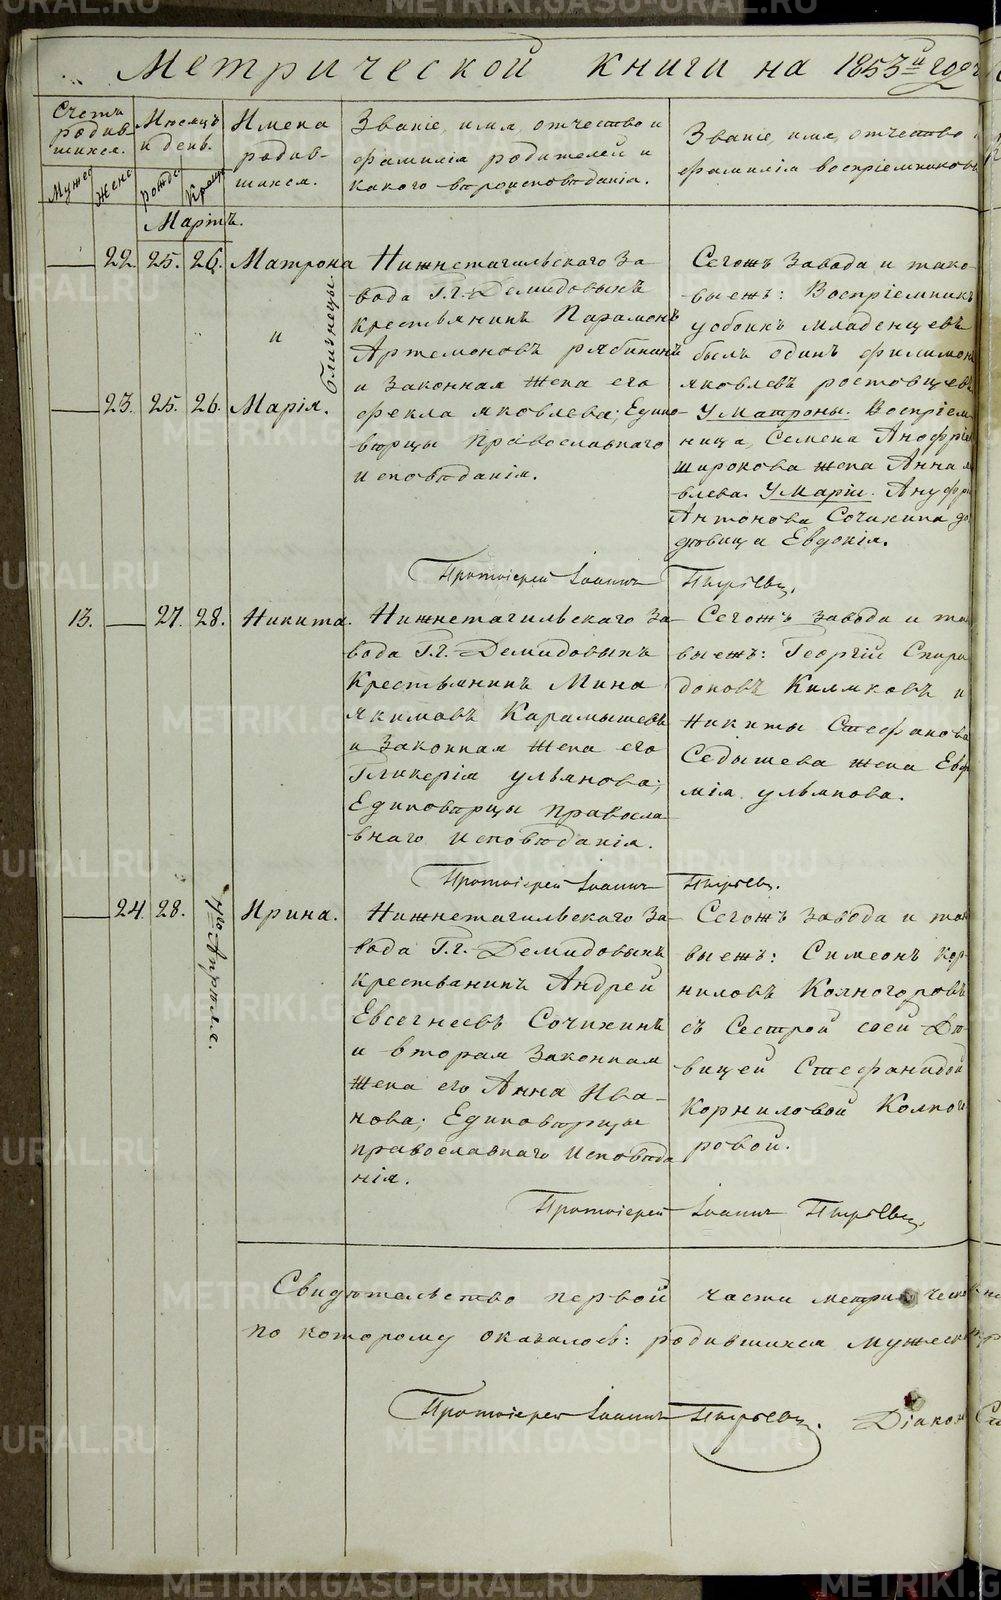 Метрической книги на 1853й годъ
Счетъ родив-шихся.
Мужес Жене
Месяцъ и день.
рожде Креще
Имена родив-шихся.
Званіе, имя, отчество и фамилія родителей и какого вѣроисповѣданія.
Званіе, имя, отчество фамилія воспріемниковъ
Мартъ.
22. 25. 26. Матрона
и
близнецы
23. 25. 26. Марія.
Нижнетагильскаго За-
вода Г.г. Демидовыхъ
крестьянинъ Парамонъ
Артемоновъ рябининъ
и Законная жена его
фекла яковлева; Едино-
вѣрцы Православнаго
исповѣданія.
Сегожъ Завода и тако-
выежъ: Воспріемникъ
у обоихъ младенцевъ
былъ одинъ филимонъ
яковлевъ ростовцевъ
У Матроны. Воспріем-
ница, Семена Анофріе
широкова жена Анна я
влева. У Маріи. Ануфрі
Антонова Сочихина до
дѣвица Евдокія.
Протоіерей Іоаннъ Пырьевъ.
13. 27. 28. Никита.
Нижнетагильскаго За-
вода Г.г. Демидовыхъ
Крестьянинъ Мина
якимовъ Карамышевъ
и Законная жена его
Гликерія ульянова;
Единовѣрцы правосла-
внаго исповѣданія.
Сегожъ завода и та
выежъ: Георгій Спири
доновъ Киляковъ и
Никиты Стефанова
Седышева жена Евф
мія ульянова.
Протоіерей Іоаннъ Пырьевъ.
24. 28.
го Апрѣля.
Ирина.
Нижнетагильскаго За-
вода Г.г. Демидовыхъ
крестьянинъ Андрей
Евсегнеевъ Сочихинъ
и вторая Законная
жена его Анна Ива-
нова; Единовѣрцы
православнаго исповѣда
нія.
Сегожъ завода и та
выежъ: Симеонъ Кор-
ниловъ Колногоровъ
съ Сестрой своей Дѣ-
вицей Стефанидой
Корниловой Колног
ровой.
Протоіерей Іоаннъ Пырьевъ.
Свидѣтельство первой части метрической
по которому оказалось: родившихся мужеска
Протоіерей Іоаннъ Пырьевъ. Діаконъ
METRIKI.GASO-URAL.RU